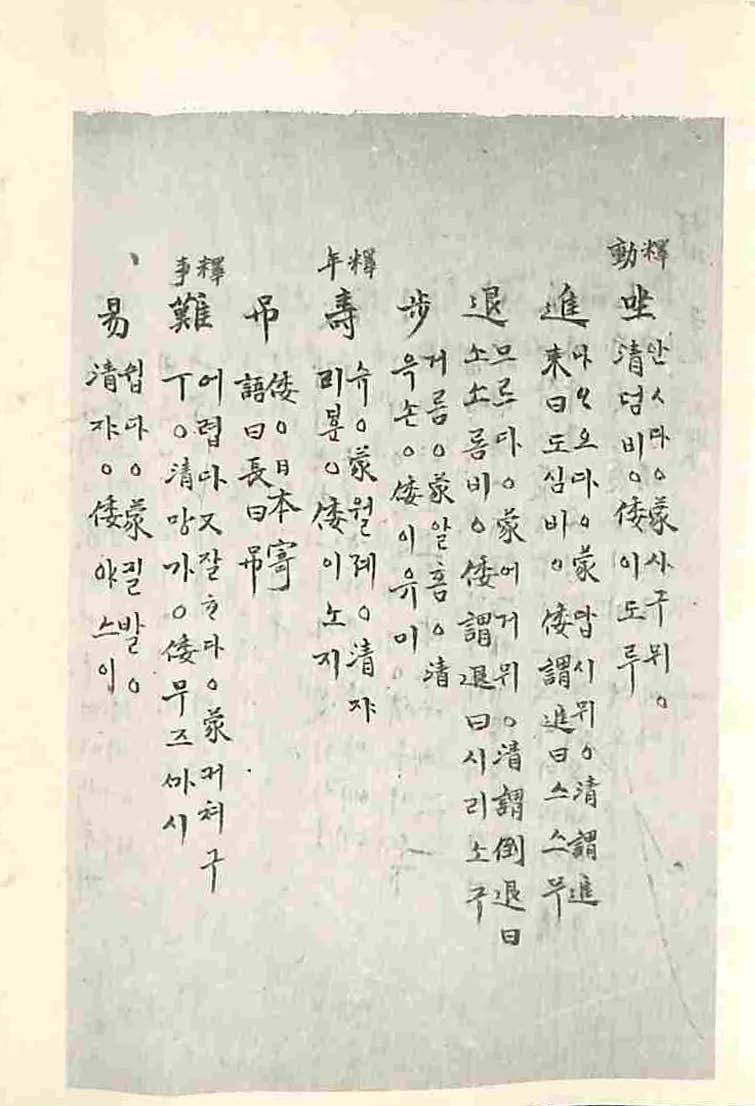 釋動
坐 안ᄌᆞ다○蒙사구뮈○
清덤비○倭이도루
進 나ᄋᆞ오다○蒙답시뮈○清謂進
來曰도심바○倭謂進曰스스무
退 므르다○蒙어거뮈○清謂倒退曰
소소롬비○倭謂退曰시리소구
步 거름○蒙알홈○清
유손○倭이유미
釋年
壽 슈○蒙월레○清쟈
리분○倭이노지
吊 倭○日本寄
語曰長曰吊
釋事
難 어렵다又잘ᄒᆞ다○蒙거쳐구
ㅜ○清망가○倭무즈시
丶
易 쉽다○蒙낄발○
清쟈○倭야스이